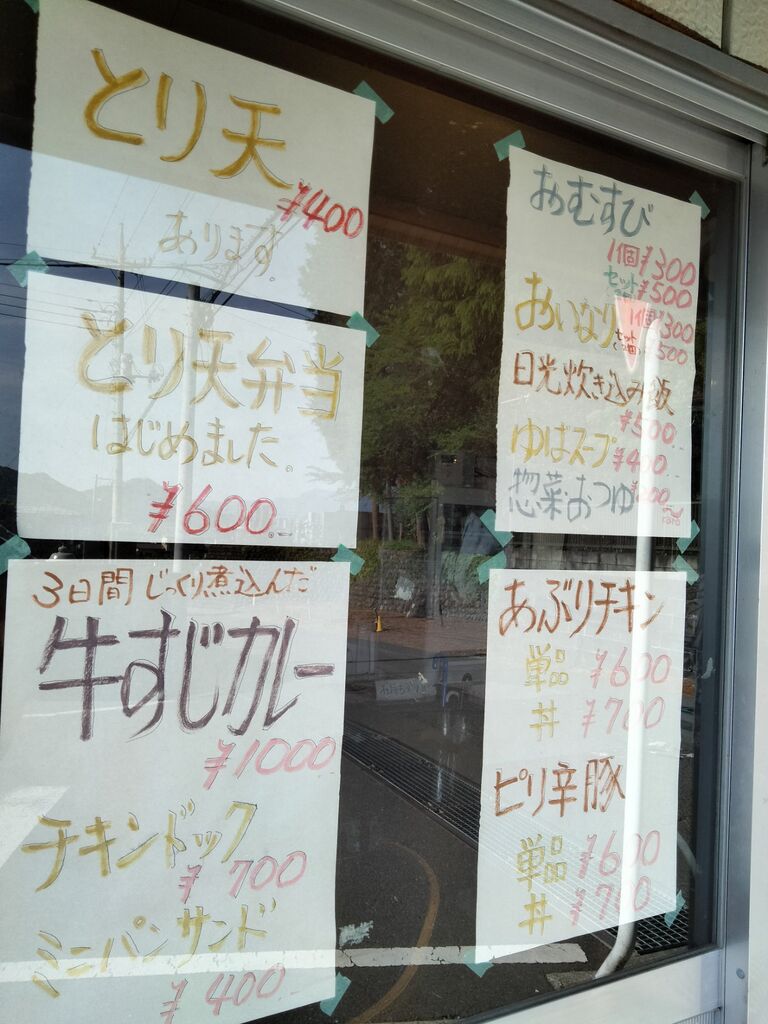 とり天
¥400
あります。
とり天弁当
はじめました。
¥600.
3日間じっくり煮込んだ
牛すじカレー
¥1000
チキンドック
¥700
ミニパンサンド
¥400
おむすび
1個¥300
セット¥500
おいなり 1個¥300
セット ¥500
日光炊き込み飯
¥500.
ゆばスープ ¥400.
惣菜・おつゆ
あぶりチキン
単品 ¥600
丼 ¥700
ピリ辛豚
単品 ¥600
丼 ¥700